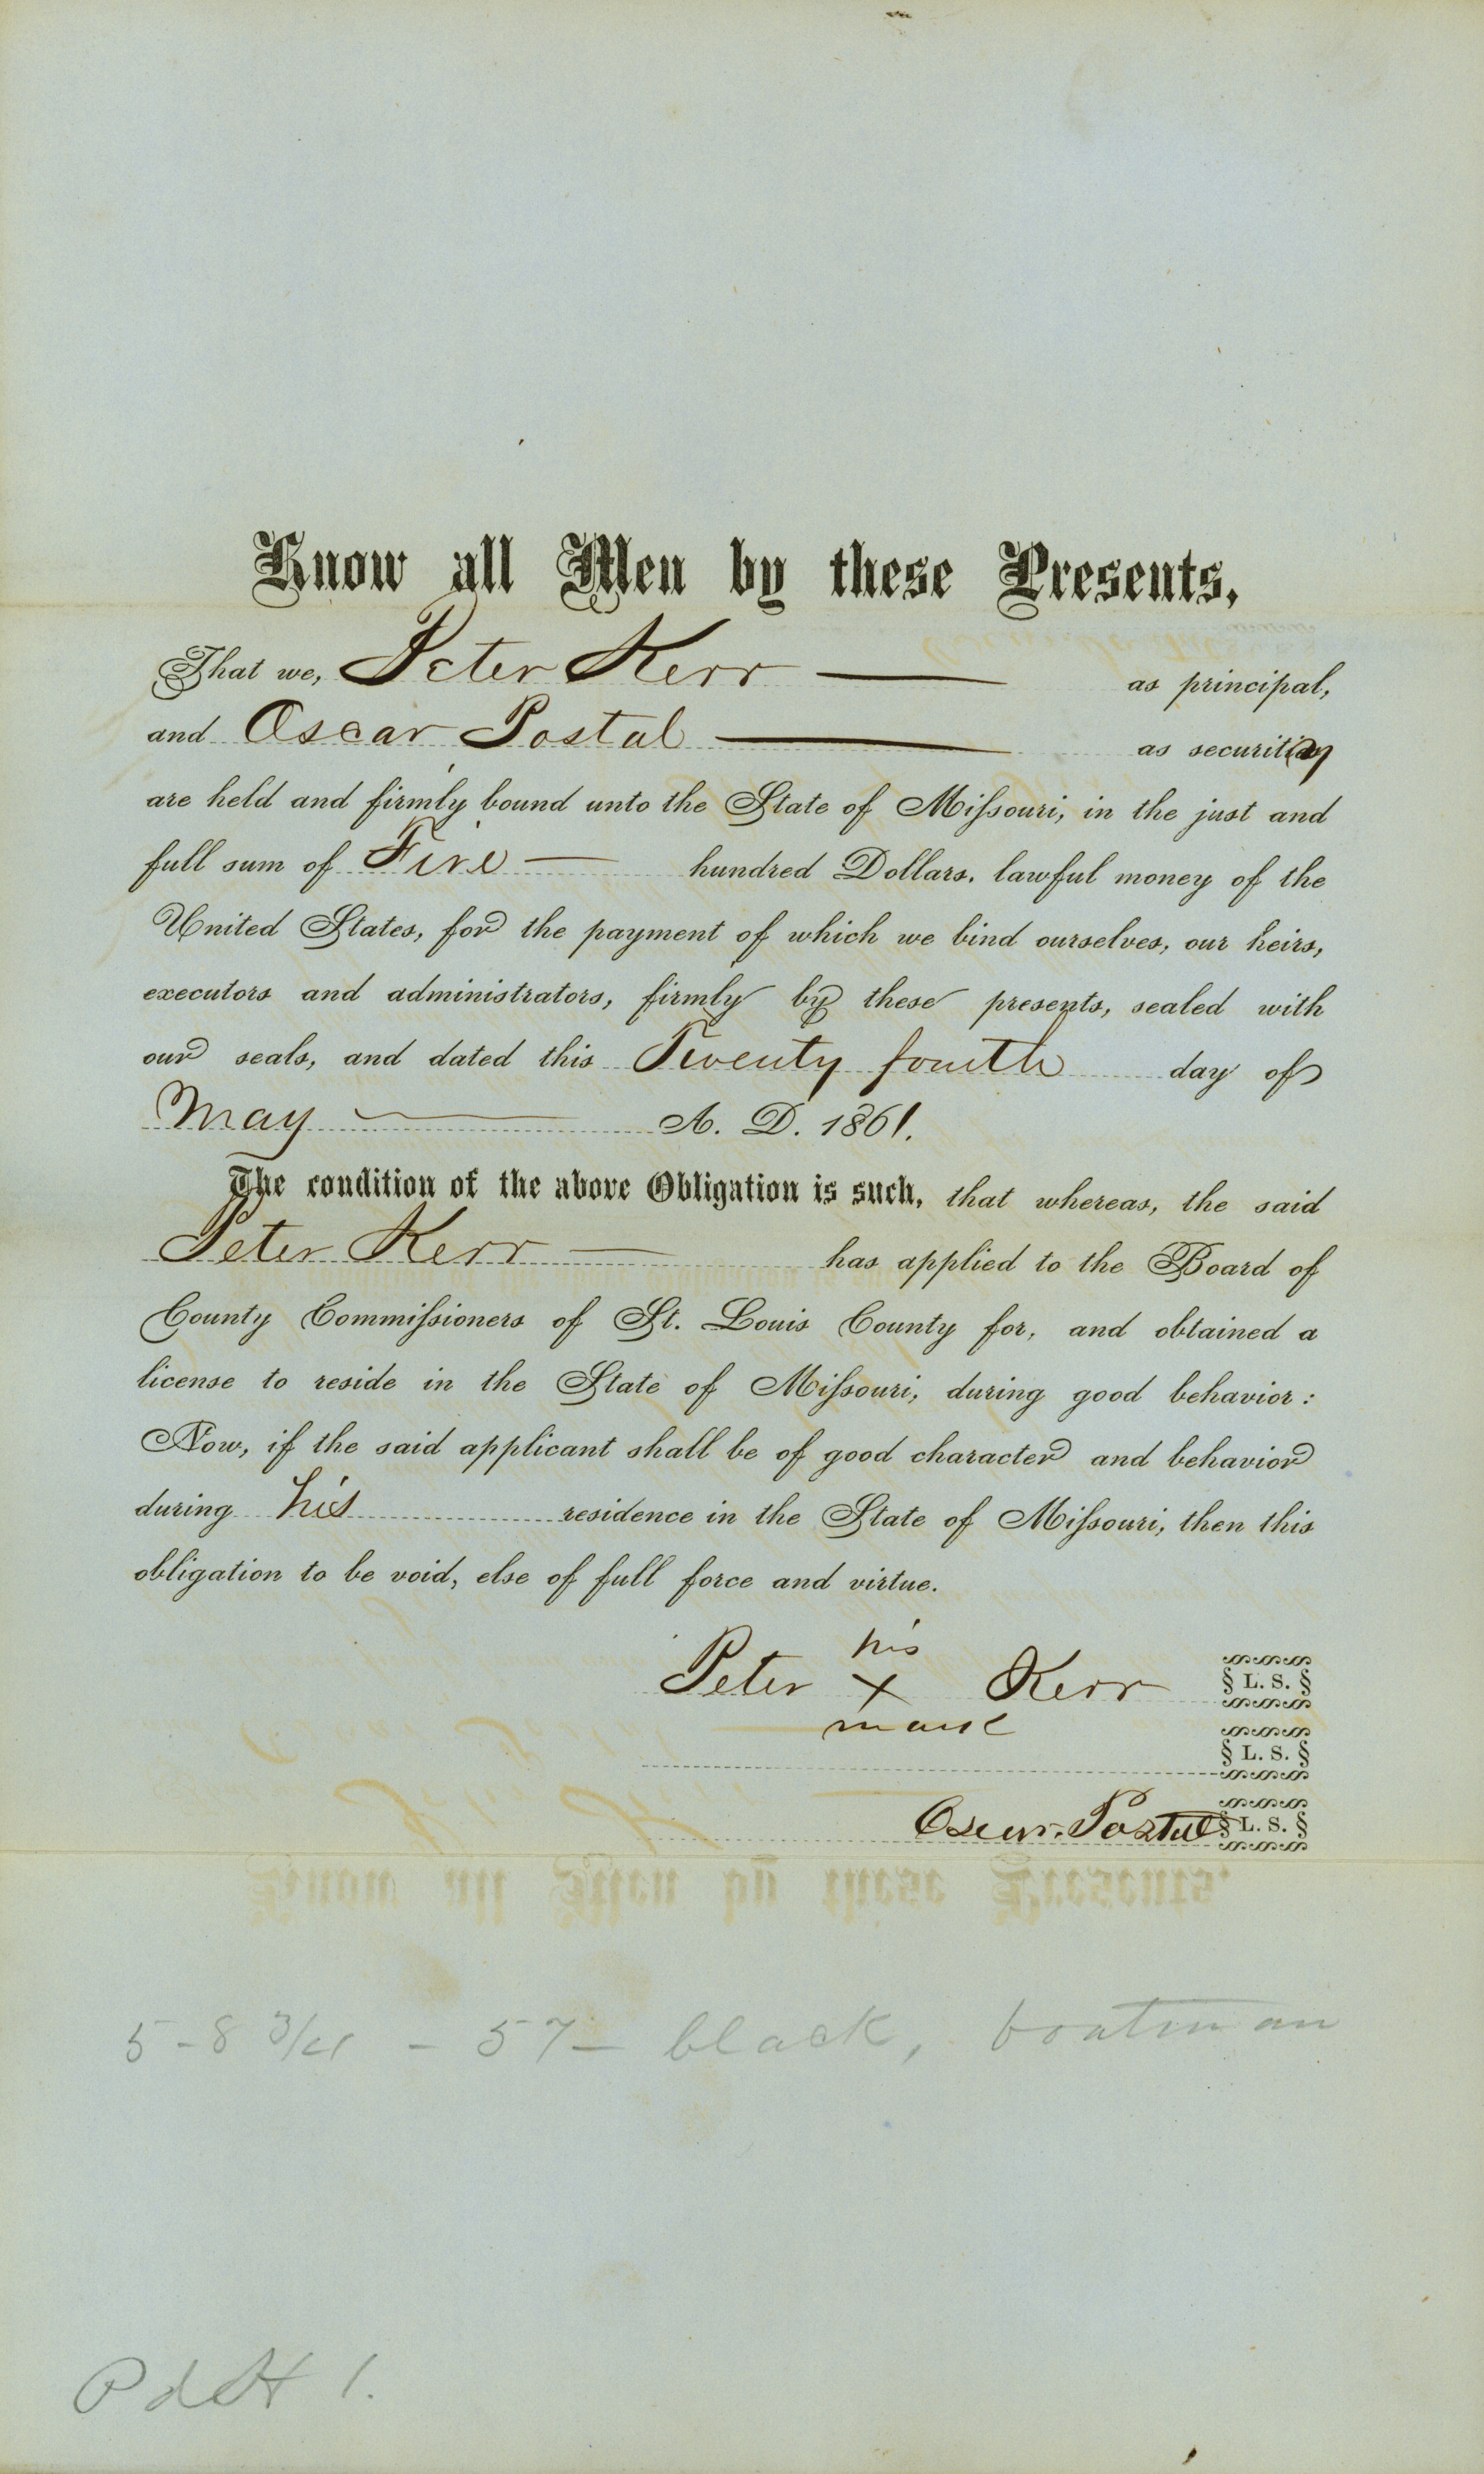 Know all Men by these Presents,
That we, Peter Kerr as principal,
and Oscar Postal as security
are held and firmly bound unto the State of Missouri, in the just and
full sum of Five hundred Dollars, lawful money of the
United States, for the payment of which we bind ourselves, our heirs,
executors and administrators, firmly by these presents, sealed with
our seals, and dated this Twenty fourth day of
May A. D. 1861.
The condition of the above Obligation is such, that whereas, the said
Peter Kerr has applied to the Board of
County Commissioners of St. Louis County for, and obtained a
license to reside in the State of Missouri, during good behavior:
Now, if the said applicant shall be of good character and behavior
during his residence in the State of Missouri, then this
obligation to be void, else of full force and virtue.
his
Peter X Kerr § L. S. §
mark
§ L. S. §
Oscar Postal § L. S. §
5-8 3/4 - 57 - black, boatman